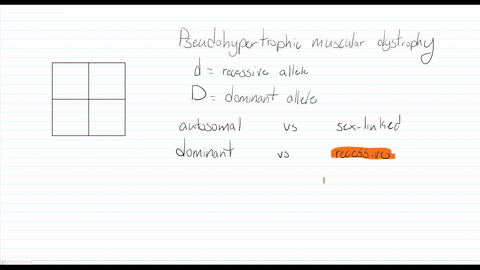 Pseudohypertrophic muscular dystrophy
d = recessive allele
D = dominant allele
autosomal vs sex-linked
dominant vs recessive